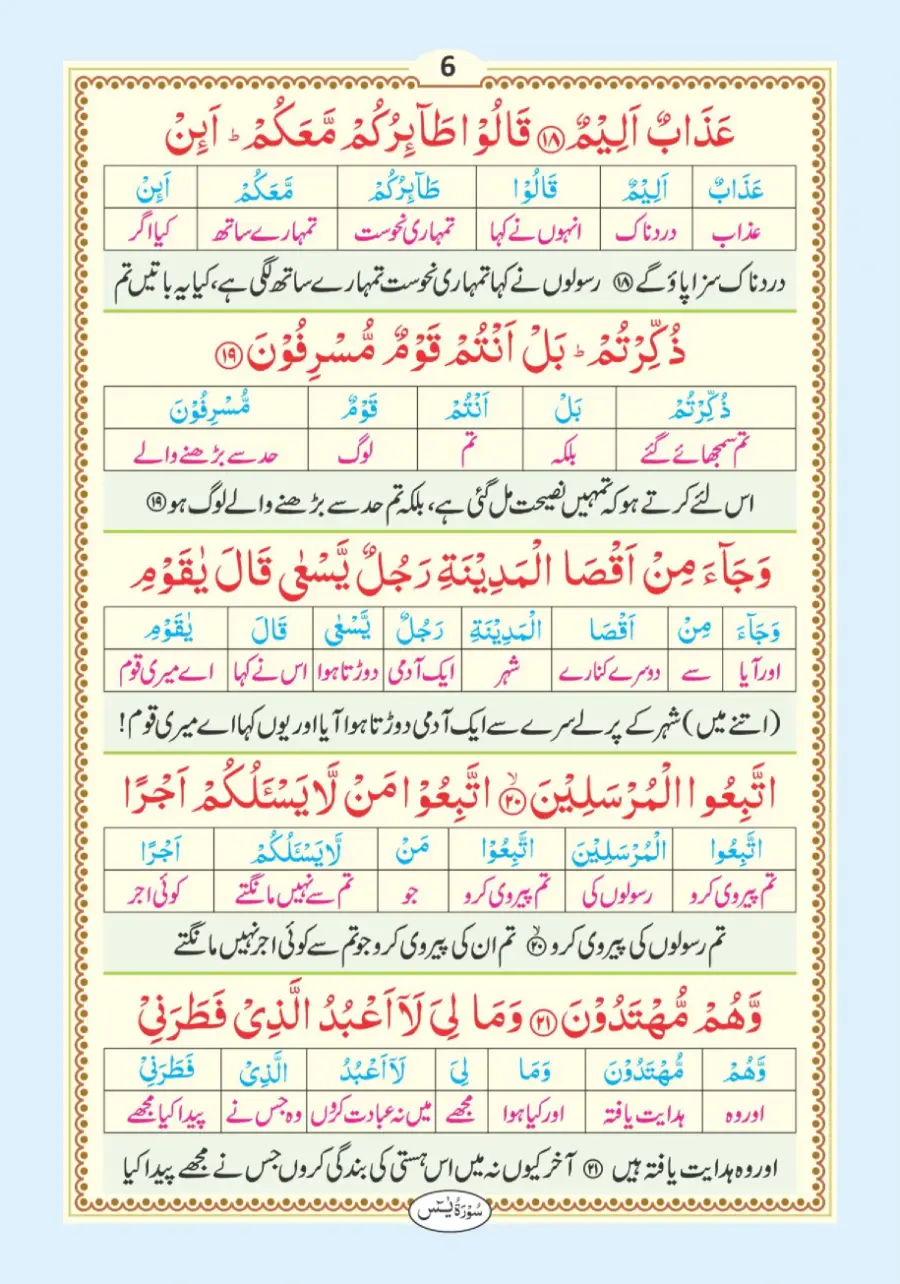 6
عَذَابٌ اَلِيْمٌ ۝۱۸ قَالُوْا طَآئِرُكُمْ مَّعَكُمْ ؕ اَئِنْ
عَذَابٌ اَلِيْمٌ قَالُوْا طَآئِرُكُمْ مَّعَكُمْ اَئِنْ
عذاب دردناک انہوں نے کہا تمہاری نحوست تمہارے ساتھ کیا اگر
دردناک سزا پاؤ گے ۝۱۸ رسولوں نے کہا تمہاری نحوست تمہارے ساتھ لگی ہے، کیا یہ باتیں تم
ذُكِّرْتُمْ ؕ بَلْ اَنْتُمْ قَوْمٌ مُّسْرِفُوْنَ ۝۱۹
ذُكِّرْتُمْ بَلْ اَنْتُمْ قَوْمٌ مُّسْرِفُوْنَ
تم سمجھائے گئے بلکہ تم لوگ حد سے بڑھنے والے
اس لئے کرتے ہو کہ تمہیں نصیحت مل گئی ہے، بلکہ تم حد سے بڑھنے والے لوگ ہو ۝۱۹
وَجَآءَ مِنْ اَقْصَا الْمَدِيْنَةِ رَجُلٌ يَّسْعٰى قَالَ يٰقَوْمِ
وَجَآءَ مِنْ اَقْصَا الْمَدِيْنَةِ رَجُلٌ يَّسْعٰى قَالَ يٰقَوْمِ
اور آیا سے دوسرے کنارے شہر ایک آدمی دوڑتا ہوا اس نے کہا اے میری قوم
(اتنے میں) شہر کے پرلے سرے سے ایک آدمی دوڑتا ہوا آیا اور یوں کہا اے میری قوم!
اتَّبِعُوا الْمُرْسَلِيْنَ ۝۲۰ۙ اتَّبِعُوْا مَنْ لَّا يَسْـَٔلُكُمْ اَجْرًا
اتَّبِعُوا الْمُرْسَلِيْنَ اتَّبِعُوْا مَنْ لَّا يَسْـَٔلُكُمْ اَجْرًا
تم پیروی کرو رسولوں کی تم پیروی کرو جو تم سے نہیں مانگتے کوئی اجر
تم رسولوں کی پیروی کرو ۝۲۰ۙ تم ان کی پیروی کرو جو تم سے کوئی اجر نہیں مانگتے
وَّهُمْ مُّهْتَدُوْنَ ۝۲۱ وَمَا لِيَ لَآ اَعْبُدُ الَّذِيْ فَطَرَنِيْ
وَّهُمْ مُّهْتَدُوْنَ وَمَا لِيَ لَآ اَعْبُدُ الَّذِيْ فَطَرَنِيْ
اور وہ ہدایت یافتہ اور کیا ہوا مجھے میں نہ عبادت کرُوں وہ جس نے پیدا کیا مجھے
اور وہ ہدایت یافتہ ہیں ۝۲۱ آخر کیوں نہ میں اس ہستی کی بندگی کروں جس نے مجھے پیدا کیا
سُوْرَةُ يٰسٓ